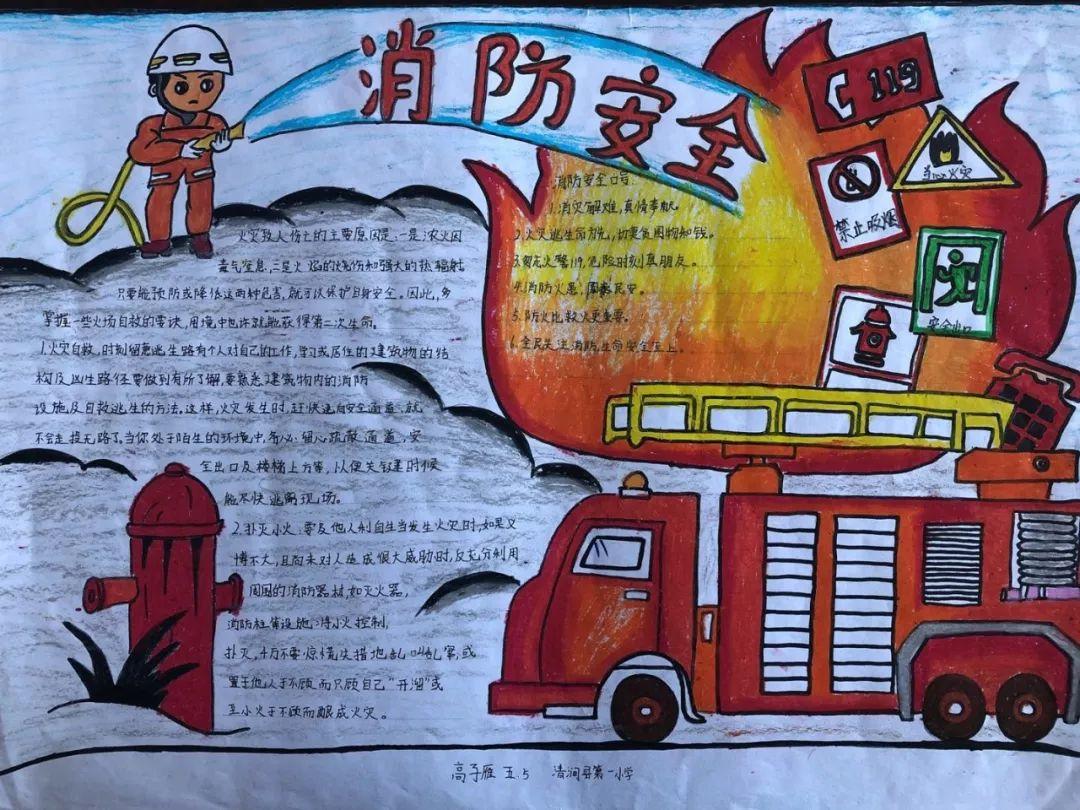 消防安全
119
当心火灾
禁止吸烟
安全出口
消防安全口号:
1.消灾解难,真情奉献。
2.火灾逃生命为先,切更贪图物和钱。
3.朋友火警119,危险时刻真朋友。
4.消防火患,国泰民安。
5.防火比救火更重要。
6.全民关注消防,生命安全至上。
火灾致人伤亡的主要原因是:一是浓火因
毒气窒息,二是火焰的烧伤和强大的热辐射
只要能预防或降低这两种危害,就可以保护自身安全。因此,多
掌握一些火场自救的要诀,困境中也许就能获得第二次生命。
1.火灾自救,时刻留意逃生路有个人对自己的工作,学习或居住的建筑物的结
构及逃生路径要做到有所了解,要熟悉建筑物内的消防
设施及自救逃生的方法。这样,火灾发生时,赶快逃向安全通道,就
不会走投无路了。当你处于陌生的环境中,务必留心疏散通道,安
全出口及楼梯上方等,以便关键时候
能尽快逃离现场。
2.扑灭小火:要及他人利自生当发生火灾时,如果义
博不大,且尚未对人造成恨大威胁时,反充分利用
周围的消防器材,如灭火器,
消防柱等设施,将小火控制,
扑灭,4万不要惊慌失措地乱叫乱窜,或
置于他人于不顾而只顾自己“开溜”或
互小火于不顾而酿成火灾。
高子雁 五.5 清涧县第一小学